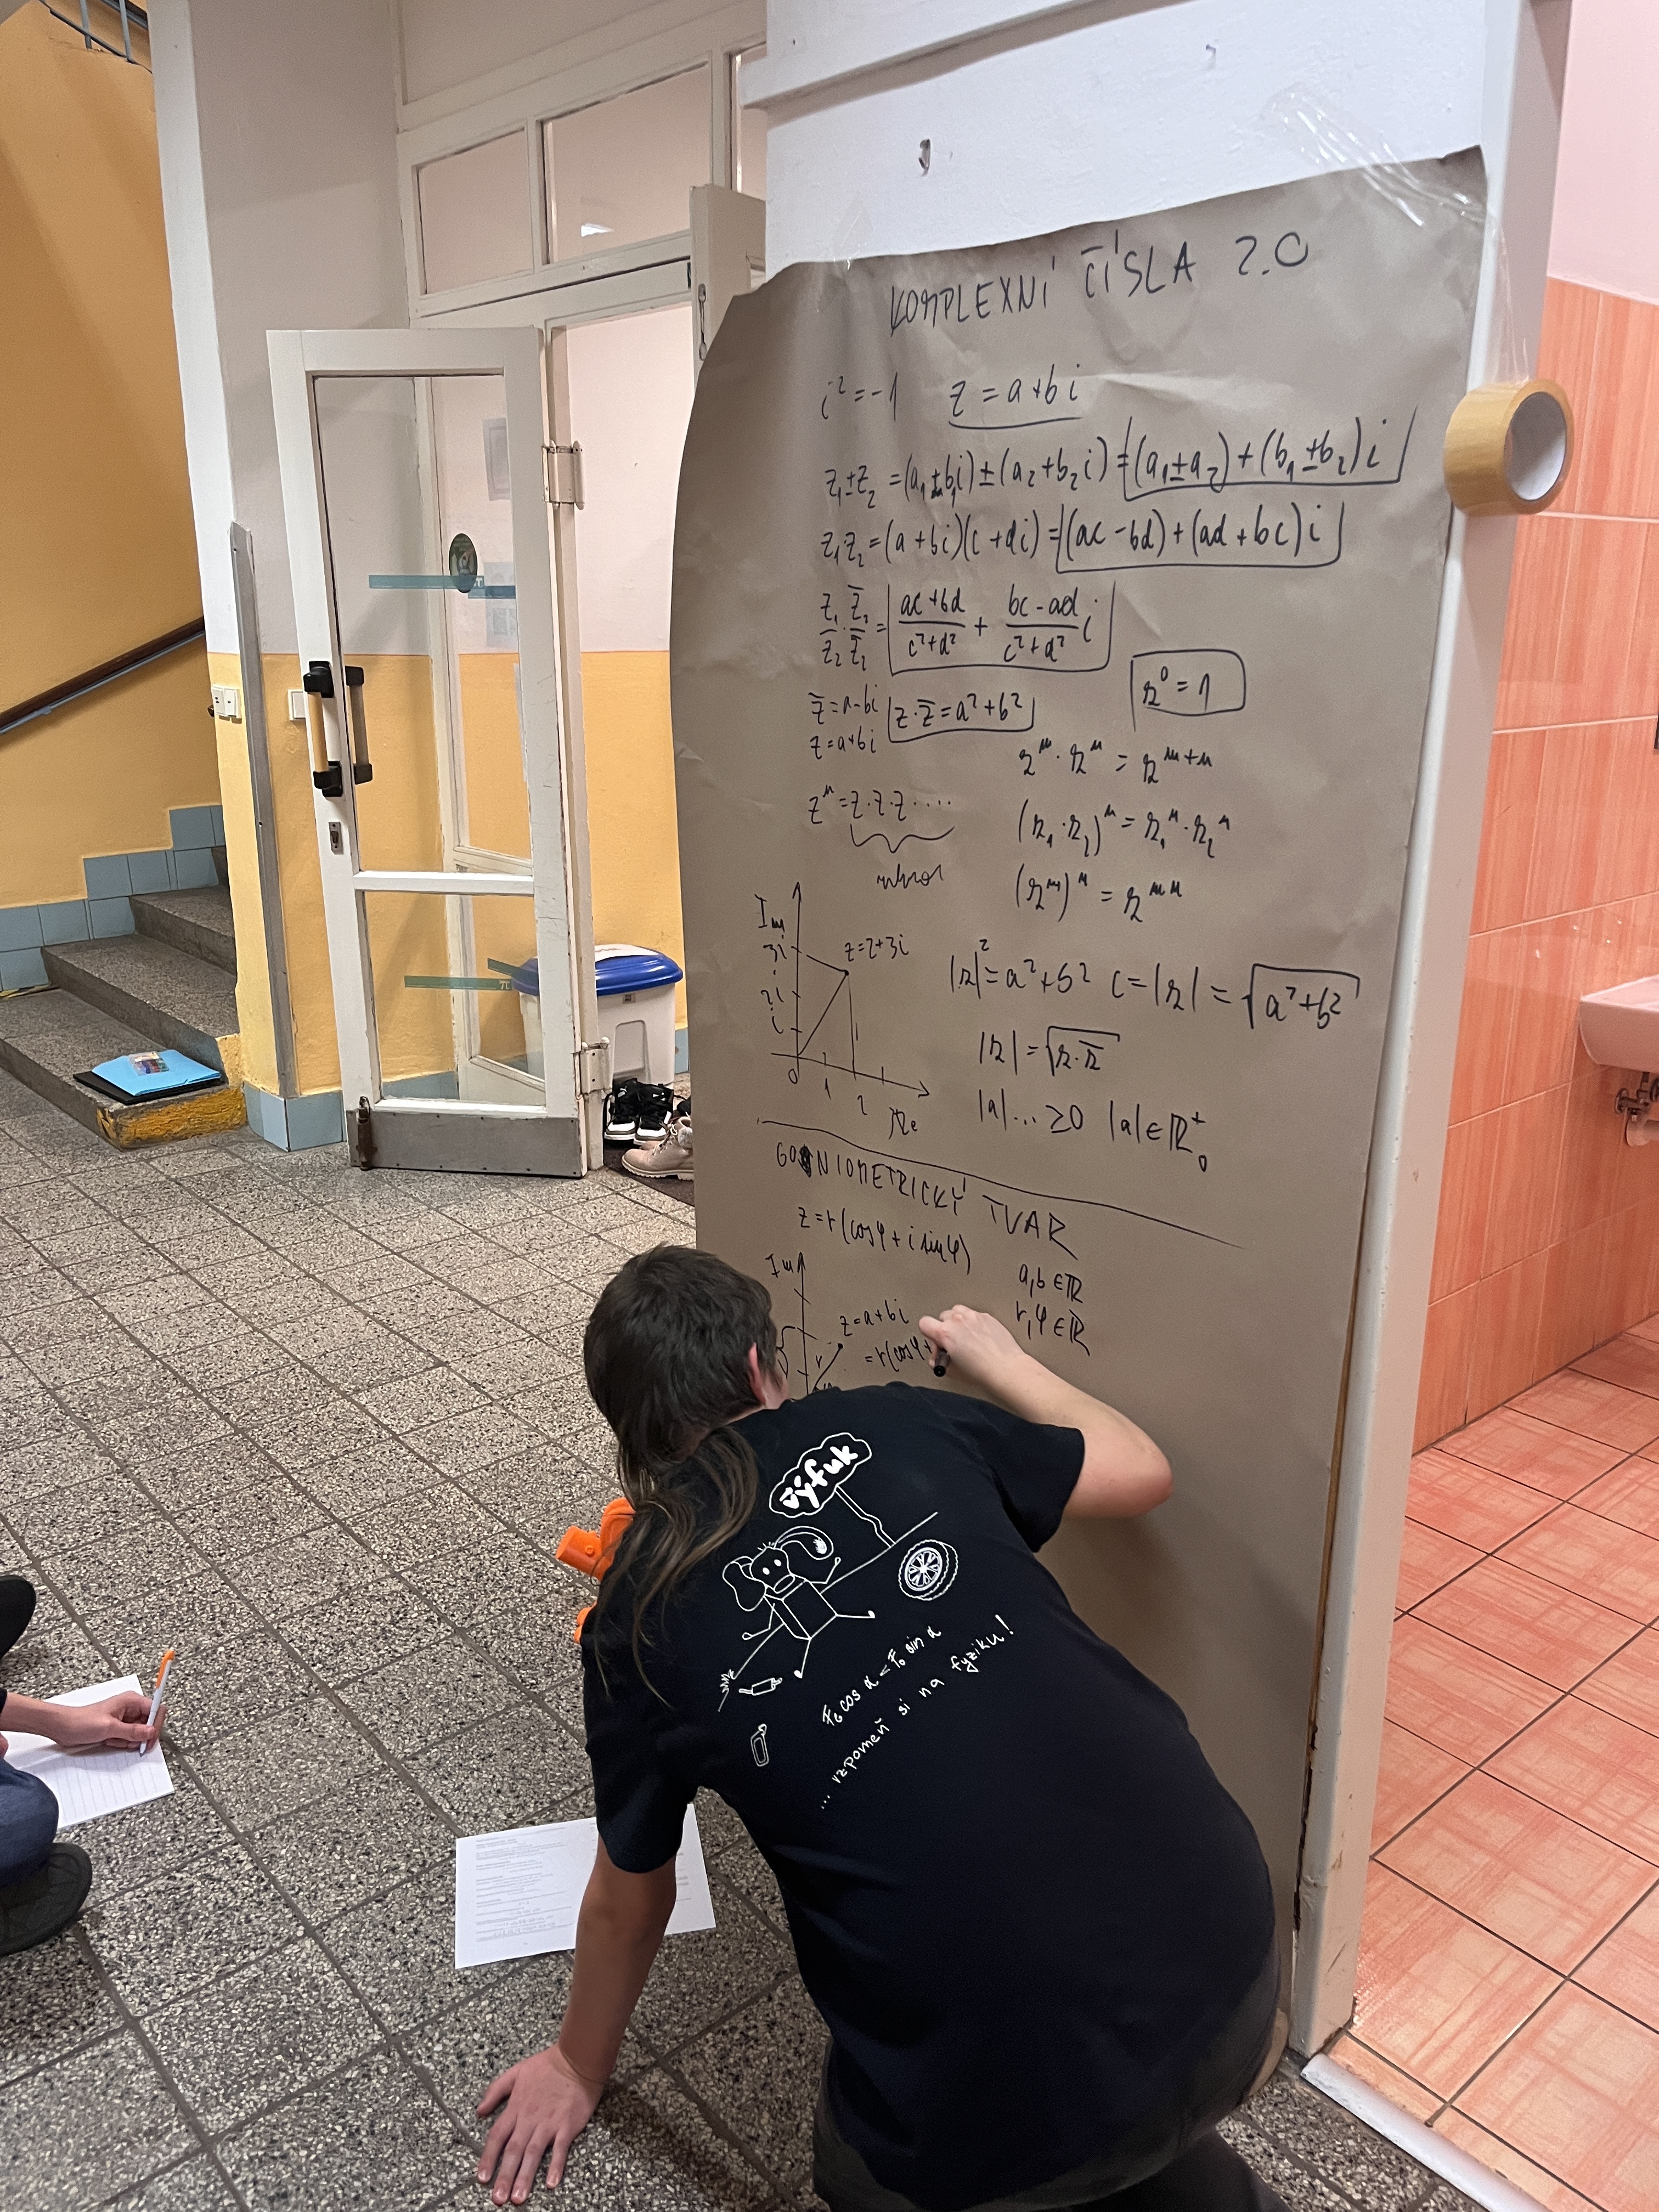 KOMPLEXNÍ ČÍSLA 2.0
i² = -1 z = a+bi
z₁±z₂ = (a₁±b₁i)±(a₂+b₂i) = (a₁±a₂)+(b₁±b₂)i
z₁z₂ = (a+bi)(c+di) = (ac-bd)+(ad+bc)i
z₁/z₂ · z̄₂/z̄₂ = (ac+bd)/(c²+d²) + (bc-ad)/(c²+d²) i
z̄ = a-bi z·z̄ = a²+b²
z = a+bi
z⁰ = 1
zⁿ = z·z·z·....
zᵐ·zⁿ = zᵐ⁺ⁿ
(z₁·z₂)ⁿ = z₁ⁿ·z₂ⁿ
(zᵐ)ⁿ = zᵐⁿ
Im
3i
2i
i
z=2+3i
0 1 2
Re
|z|² = a²+b² c = |z| = √(a²+b²)
|z| = √(z·z̄)
|a|... ≥0 |a| ∈ ℝ₀⁺
GONIOMETRICKÝ TVAR
z = r(cosφ + i sinφ)
a,b ∈ ℝ
r,φ ∈ ℝ
Im
z = a+bi
= r(cosφ+
r
výfuk
F₆ cos α = F₀ sin α
... vzpomeň si na fyziku!